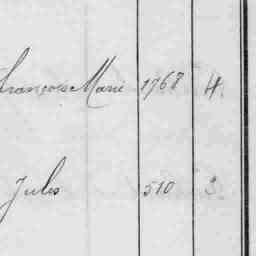 françoise Marie 1768 4.
Jules 510 3